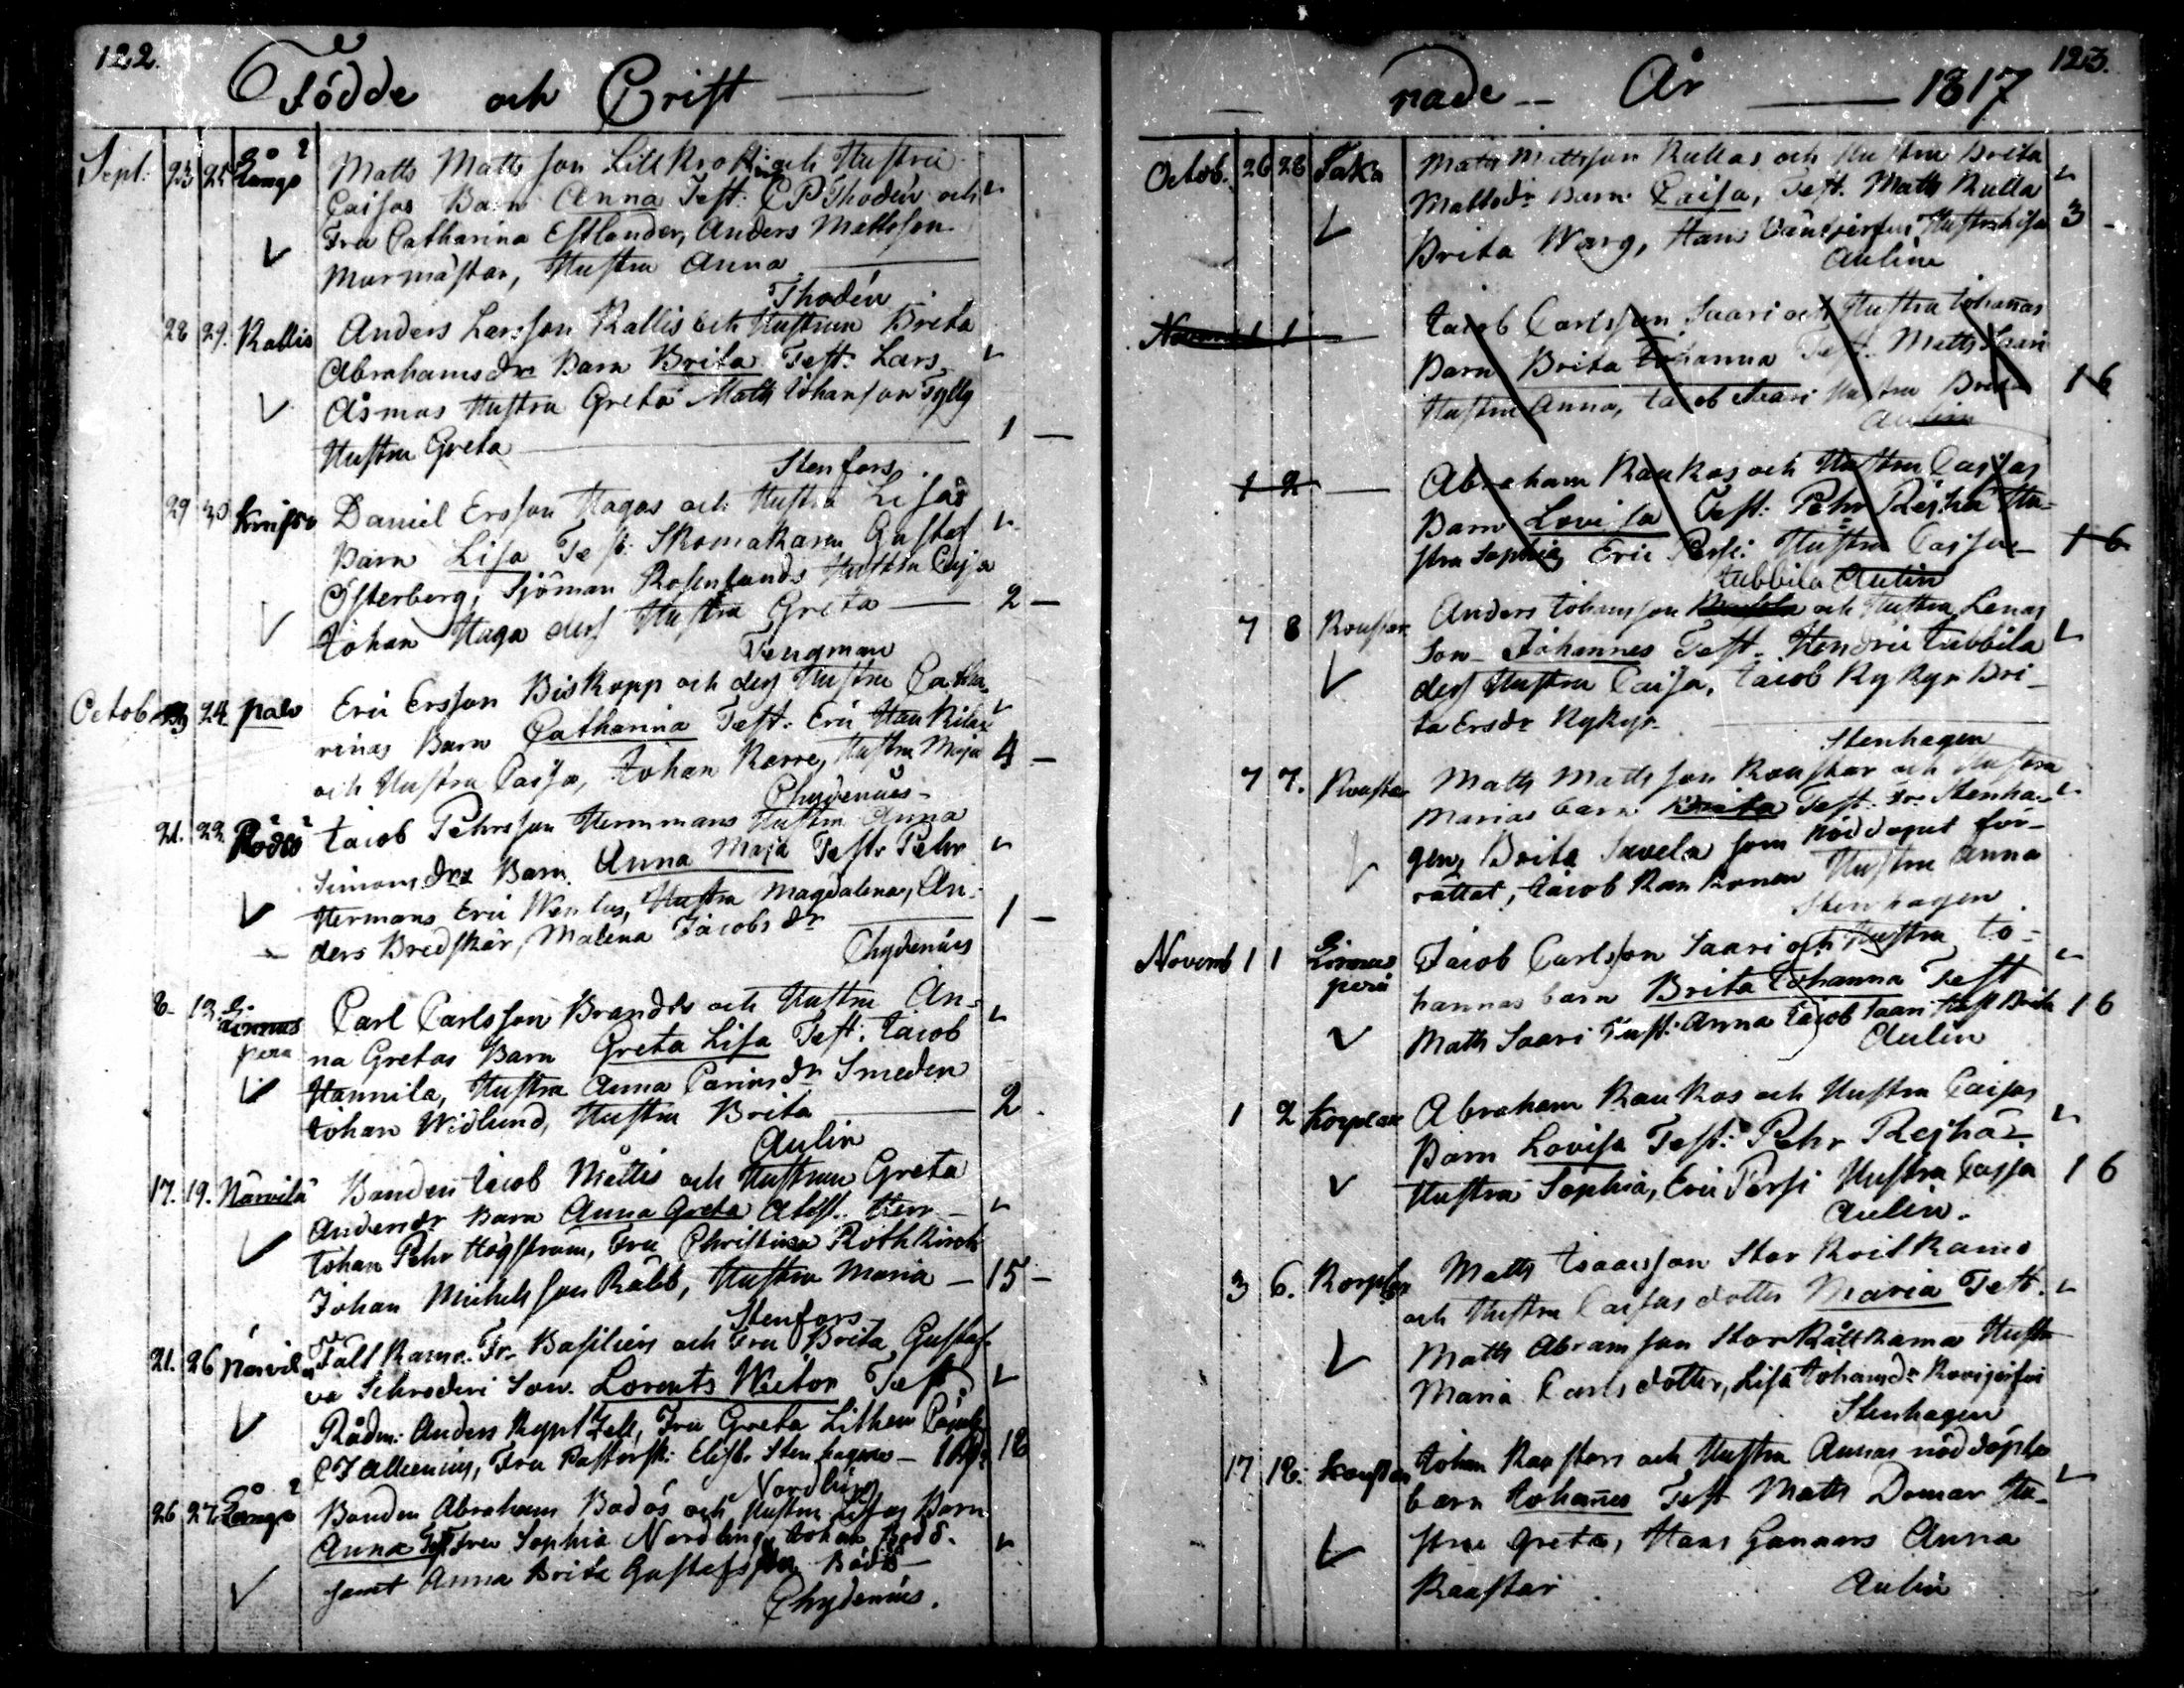 122.
Födde och Christ
Sept. 23 25 Långö Matts Mattsson Lill Kro och Hustru
Caisas Barn Anna Test: C P Thodén och
Fru Catharina Estlander, Anders Mattsson
Murmästar, Hustru Anna
Thodén
28 29. Kallis Anders Larsson Kallis och Hustrun Brita
Abrahamsdr Barn Brita Test: Lars
Åsmus Hustru Greta Matts Johansson Tylly
Hustru Greta 1 —
Stenfors.
29 30 Daniel Ersson Hagas och Hustru Lisas
Barn Lisa Test. Skomakaren Gustaf
Österberg, Sjöman Rosenlunds Hustru Caisa
Johan Haga dess Hustru Greta — 2 —
Tengman
Octob 23 24 palo Eric Ersson Biskopp och dess Hustru Catha-
rinas Barn Catharina Test. Eric
och Hustru Caisa, Johan Karre, Hustru Maja 4 —
Chydenius
21. 22. Rödsö Jacob Pehrsson Hermmans Hustru Anna
Simonsdrs Barn Anna Maja Test. Pehr
Hermans Eric Hustru Magdalena, An-
ders Bredskär, Malena Jacobsdr 1 —
Chydenius
8 13 Linnus
pera Carl Carlsson Brandts och Hustru An-
na Gretas Barn Greta Lisa Test: Jacob
Hannila, Hustru Anna Carinsdr Smeden
Johan Widlund, Hustru Brita 2.
Aulin
17. 19. Närvilä Bonden Jacob Mattis och Hustrun Greta
Andersdr Barn Anna Greta Herr
Johan Pehr Högström, Fru Christina Rothkirch
Johan Michelsson Räbb, Hustru Maria — 15 —
Stenfors
21. 26 Närvilä Fält Kamr. Fr. Basilier och Fru Brita Gustaf-
va Schroderi Son. Lorents Wictor Test
Rådm: Anders Kyntzell, Fru Greta Lithen
C J Fru Pastorsk: Elisb. Stenhagen — 18
Nordling
26 27. Långö Bonden Abraham Bodös och Hustru Lisas Barn
Anna Test Fru Sophia Nordling, Johan Bodö.
samt Anna Brita Gustafsdr Bodö
Chydenius.
123.
nade — År — 1817
Octob. 26 28 Jaka Matts Mattsson Kullas och Hustru Brita
Mattsdr Barn Caisa, Test. Matts Kulla
Brita Warg, Hans Hustru Lisa 3 —
Aulin
Novemb 1 Jacob Carlsson Saari och Hustru Johañas
Barn Brita Johanna Test. Matts Saari
Hustru Anna, Jacob Saari Hustru Brita 1 6
Aulin
1 2 Abraham Kaukos och Hustru Caisas
Barn Lovisa Test: Pehr Rejha Hu-
stru Sophia, Eric Persi Hustru Caisa — 1 6
Jubbila Aulin
7 8 Anders Johansson och Hustru Lenas
Son Johannes Test. Hendric Jubbila
dess Hustru Caisa, Jacob Kykyr Bri-
ta Ersdr Kykyr
Stenhagen
7 7. Matts Mattsson Kaustar och Hustru
Marias barn Test. Stenha-
gen, Brita Savela som nöddopet för-
rättat, Jacob Kankonen Hustru Anna
Stenhagen
Novemb 1 1 Linnus
perä Jacob Carlsson Saari och Hustru Jo-
hannas barn Brita Johanna Test
Matts Saari Hust: Anna Jacob Saari Hust Brita 1 6
Aulin
1 2 Korplax Abraham Kaukos och Hustru Caisas
Barn Lovisa Test: Pehr Rejha
Hustru Sophia, Eric Persi Hustru Caisa 1 6
Aulin.
3 6. Korplax Matts Isaacsson Stor
och Hustru Caisas dotter Maria Test.
Matts Abramsson Stor Hustru
Maria Carlsdotter, Lisa Johansdr
Stenhagen
17 18. Kaustar Johan Kaustars och Hustru Annas nöddöpta
barn Johañes Test Matts Domar Hu-
stru Greta, Hans Gunnars Anna
Kaustar Aulin